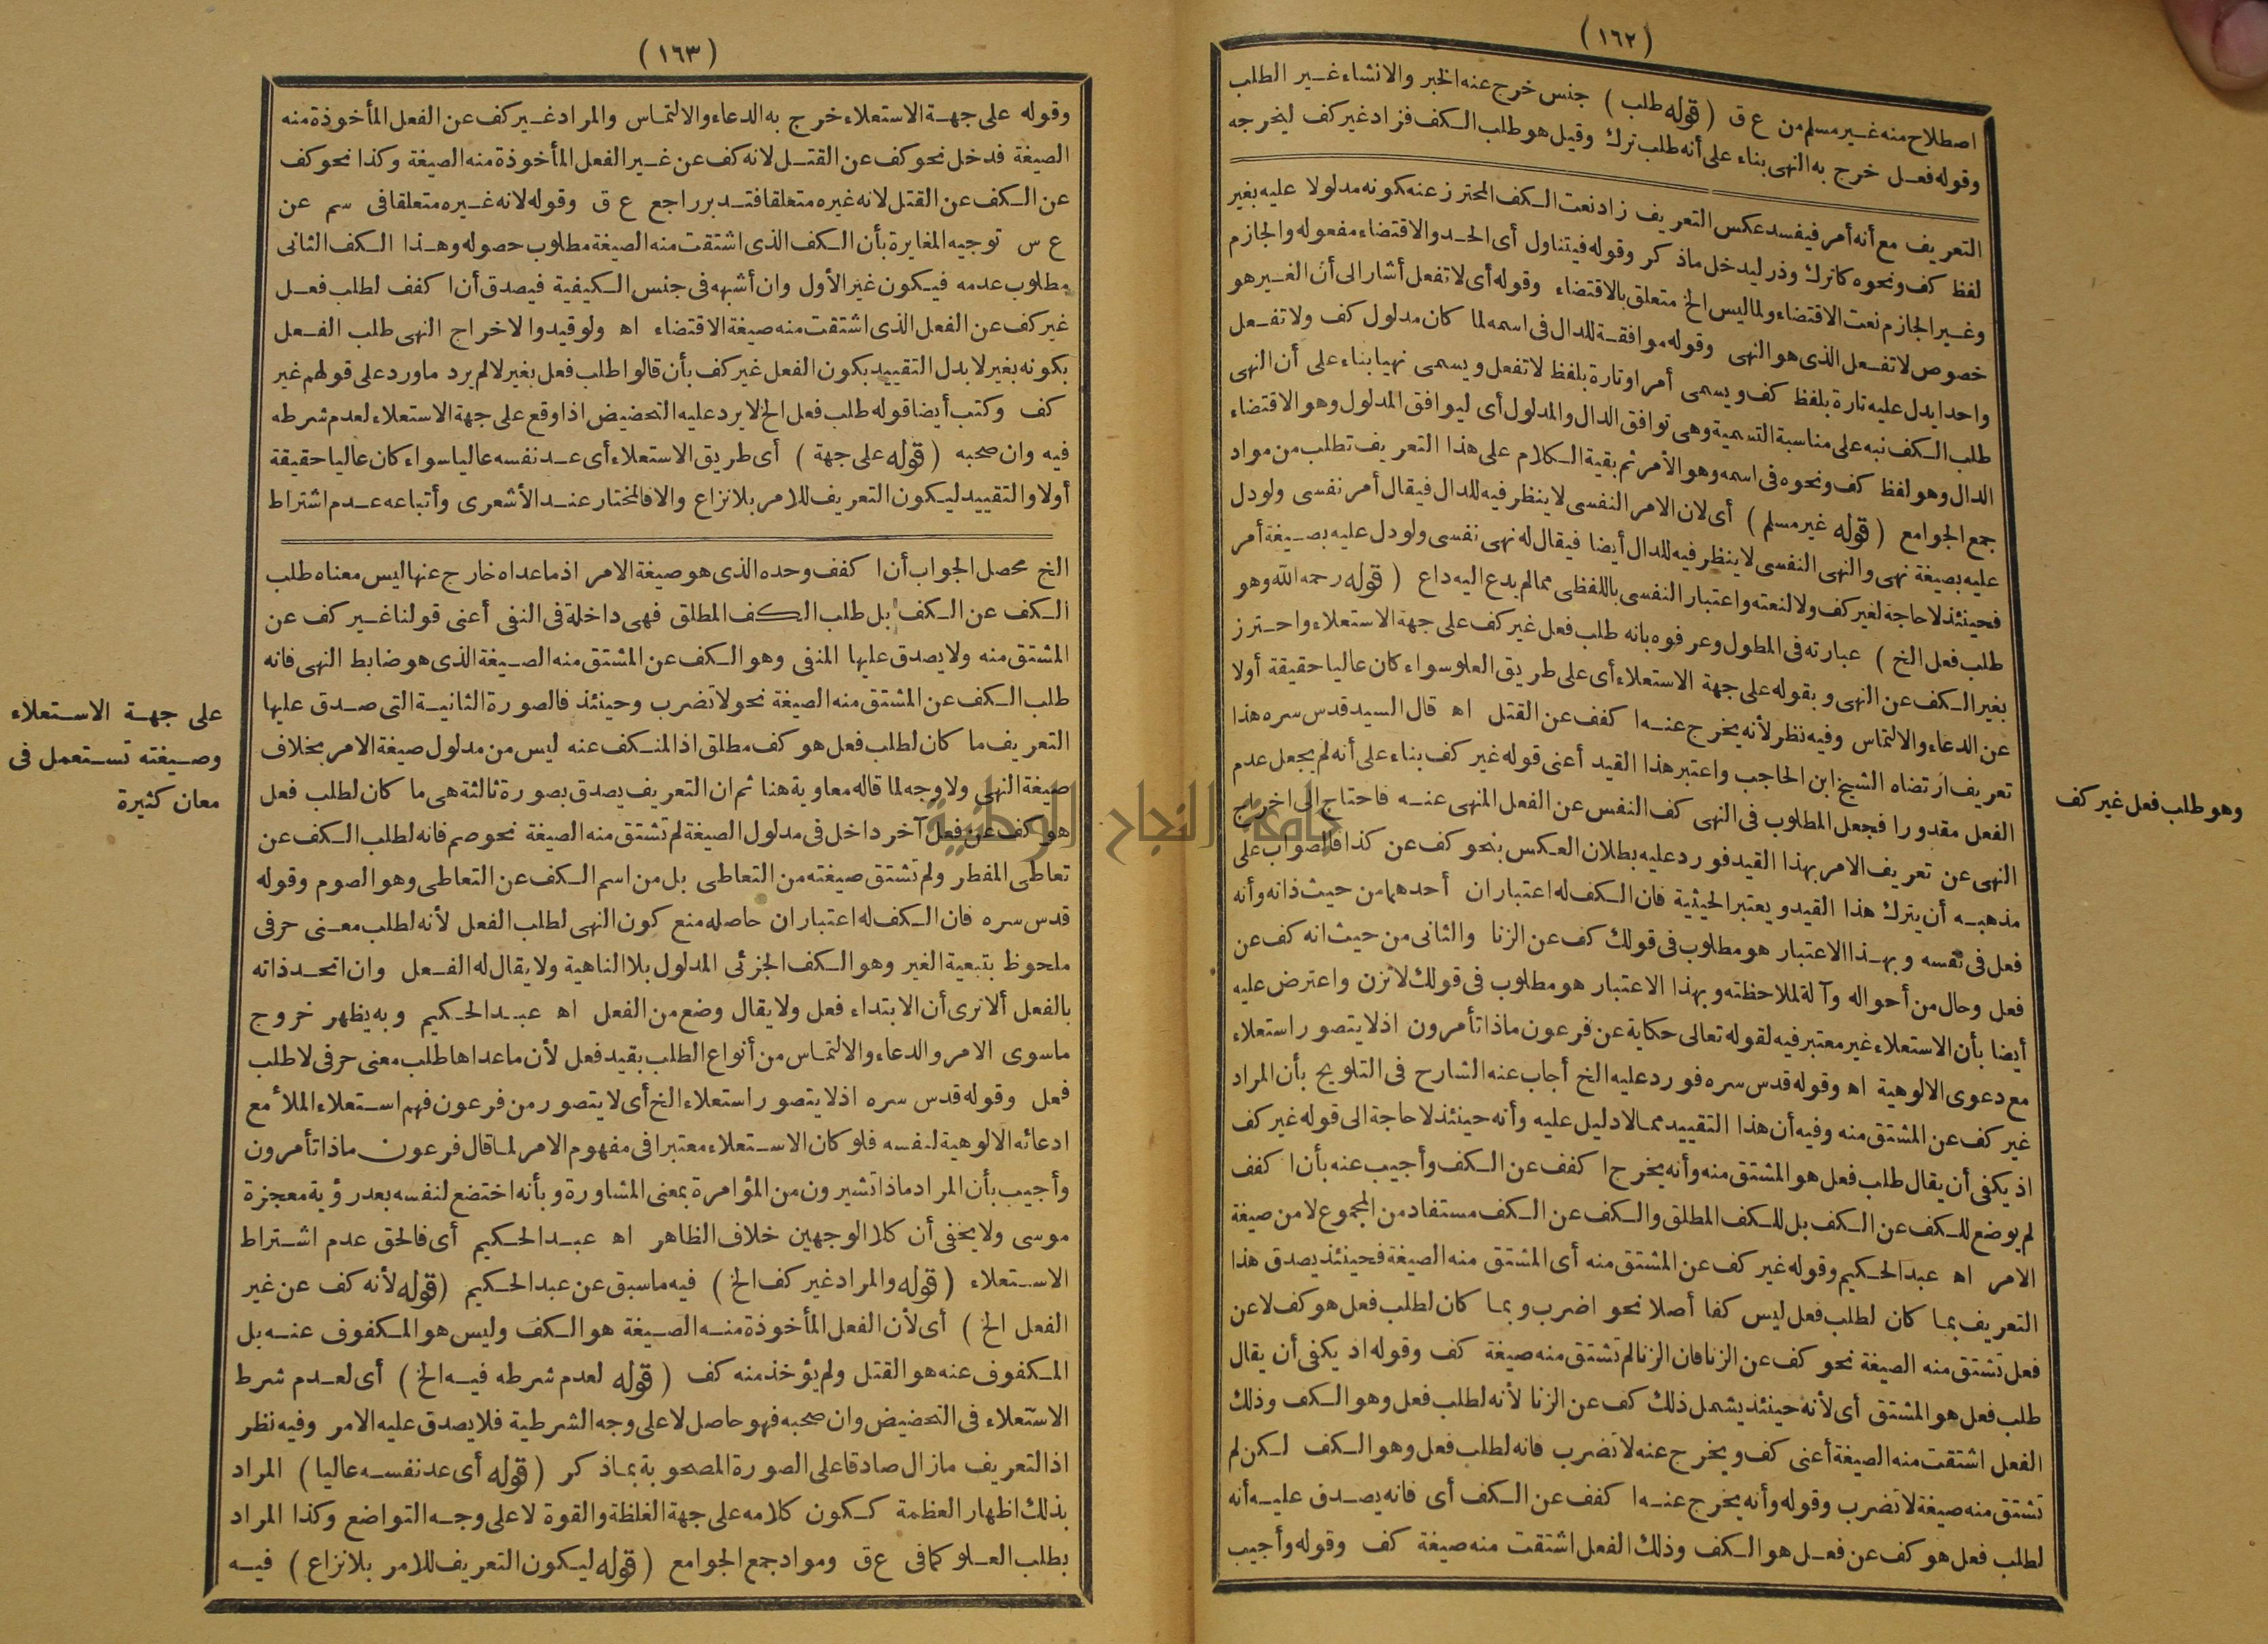 (١٦٢)
اصطلاح منه غير مسلم من ع ق (قوله طلب) جنس خرج عنه الخبر والانشاء غير الطلب
وقوله فعل خرج به النهى بناء على أنه طلب ترك وقيل هو طلب الكف فزاد غير كف ليخرجه
التعريف مع أنه أمر فيفسد عكس التعريف زاد نعت الكف المحترز عنه كونه مدلولا عليه بغير
لفظ كف ونحوه كاترك وذر ليدخل ماذكر وقوله فيتناول أى الحد والاقتضاء مفعوله والجازم
وغير الجازم نعت الاقتضاء ولما ليس الخ متعلق بالاقتضاء وقوله أى لاتفعل أشار الى أن الغير هو
خصوص لاتفعل الذى هو النهى وقوله موافقة للدال فى اسمه لما كان مدلول كف ولاتفعل
واحدا يدل عليه تارة بلفظ كف ويسمى أمرا وتارة بلفظ لاتفعل ويسمى نهيا بناء على أن النهى
طلب الكف نبه على مناسبة التسمية وهى توافق الدال والمدلول أى ليوافق المدلول وهو الاقتضاء
الدال وهو لفظ كف ونحوه فى اسمه وهو الأمر ثم بقية الكلام على هذا التعريف تطلب من مواد
جمع الجوامع (قوله غير مسلم) أى لان الامر النفسى لاينظر فيه للدال فيقال أمر نفسى ولو دل
عليه بصيغة نهى والنهى النفسى لاينظر فيه للدال أيضا فيقال له نهى نفسى ولو دل عليه بصيغة أمر
فحينئذ لاحاجة لغير كف ولا لنعته واعتبار النفسى باللفظى مما لم يدع اليه داع (قوله رحمه الله وهو
طلب فعل الخ) عبارته فى المطول وعرفوه بانه طلب فعل غير كف على جهة الاستعلاء واحترز
بغير الكف عن النهى وبقوله على جهة الاستعلاء أى على طريق العلو سواء كان عاليا حقيقة أولا
عن الدعاء والالتماس وفيه نظر لأنه يخرج عنه ا كفف عن القتل اه قال السيد قدس سره هذا
تعريف ارتضاه الشيخ ابن الحاجب واعتبر هذا القيد أعنى قوله غير كف بناء على أنه لم يجعل عدم
الفعل مقدورا فجعل المطلوب فى النهى كف النفس عن الفعل المنهى عنه فاحتاج الى اخراج
النهى عن تعريف الامر بهذا القيد فورد عليه بطلان العكس بنحو كف عن كذا فالصواب على
مذهبه أن يترك هذا القيد ويعتبر الحيثية فان الكف له اعتباران أحدهما من حيث ذاته وأنه
فعل فى نفسه وبهذا الاعتبار هو مطلوب فى قولك كف عن الزنا والثانى من حيث انه كف عن
فعل وحال من أحواله وآلة لملاحظته وبهذا الاعتبار هو مطلوب فى قولك لاتزن واعترض عليه
أيضا بأن الاستعلاء غير معتبر فيه لقوله تعالى حكاية عن فرعون ماذا تأمرون اذ لايتصور استعلاء
مع دعوى الالوهية اه وقوله قدس سره فورد عليه الخ أجاب عنه الشارح فى التلويح بأن المراد
غير كف عن المشتق منه وفيه أن هذا التقييد مما لادليل عليه وأنه حينئذ لاحاجة الى قوله غير كف
اذ يكفى أن يقال طلب فعل هو المشتق منه وأنه يخرج ا كفف عن الكف وأجيب عنه بأن ا كفف
لم يوضع للكف عن الكف بل للكف المطلق والكف عن الكف مستفاد من المجموع لا من صيغة
الامر اه عبد الحكيم وقوله غير كف عن المشتق منه أى المشتق منه الصيغة فحينئذ يصدق هذا
التعريف بما كان لطلب فعل ليس كفا أصلا نحو اضرب وبما كان لطلب فعل هو كف لا عن
فعل تشتق منه الصيغة نحو كف عن الزنا فان الزنا لم تشتق منه صيغة كف وقوله اذ يكفى أن يقال
طلب فعل هو المشتق أى لأنه حينئذ يشمل ذلك كف عن الزنا لأنه لطلب فعل وهو الكف وذلك
الفعل اشتقت منه الصيغة أعنى كف ويخرج عنه لاتضرب فانه لطلب فعل وهو الكف لكن لم
تشتق منه صيغة لاتضرب وقوله وأنه يخرج عنه ا كفف عن الكف أى فانه يصدق عليه أنه
لطلب فعل هو كف عن فعل هو الكف وذلك الفعل اشتقت منه صيغة كف وقوله وأجيب
وهو طلب فعل غير كف
(١٦٣)
وقوله على جهة الاستعلاء خرج به الدعاء والالتماس والمراد غير كف عن الفعل المأخوذة منه
الصيغة فدخل نحو كف عن القتل لانه كف عن غير الفعل المأخوذة منه الصيغة وكذا نحو كف
عن الكف عن القتل لانه غيره متعلقا فتدبر راجع ع ق وقوله لانه غيره متعلقا فى سم عن
ع س توجيه المغايرة بأن الكف الذى اشتقت منه الصيغة مطلوب حصوله وهذا الكف الثانى
مطلوب عدمه فيكون غير الأول وان أشبهه فى جنس الكيفية فيصدق أن ا كفف لطلب فعل
غير كف عن الفعل الذى اشتقت منه صيغة الاقتضاء اه ولو قيدوا لاخراج النهى طلب الفعل
بكونه بغير لا بدل التقييد بكون الفعل غير كف بأن قالوا طلب فعل بغير لا لم يرد ماورد على قولهم غير
كف وكتب أيضا قوله طلب فعل الخ لايرد عليه التحضيض اذا وقع على جهة الاستعلاء لعدم شرطه
فيه وان صحبه (قوله على جهة) أى طريق الاستعلاء أى عد نفسه عاليا سواء كان عاليا حقيقة
أولا والتقييد ليكون التعريف للامر بلا نزاع والا فالمختار عند الأشعرى وأتباعه عدم اشتراط
الخ محصل الجواب أن ا كفف وحده الذى هو صيغة الامر اذ ماعداه خارج عنها ليس معناه طلب
الكف عن الكف بل طلب الكف المطلق فهى داخلة فى النفى أعنى قولنا غير كف عن
المشتق منه ولا يصدق عليها المنفى وهو الكف عن المشتق منه الصيغة الذى هو ضابط النهى فانه
طلب الكف عن المشتق منه الصيغة نحو لاتضرب وحينئذ فالصورة الثانية التى صدق عليها
التعريف ما كان لطلب فعل هو كف مطلق اذ المنكف عنه ليس من مدلول صيغة الامر بخلاف
صيغة النهى ولاوجه لما قاله معاوية هنا ثم ان التعريف يصدق بصورة ثالثة هى ما كان لطلب فعل
هو كف عن فعل آخر داخل فى مدلول الصيغة لم تشتق منه الصيغة نحو صم فانه لطلب الكف عن
تعاطى المفطر ولم تشتق صيغته من التعاطى بل من اسم الكف عن التعاطى وهو الصوم وقوله
قدس سره فان الكف له اعتباران حاصله منع كون النهى لطلب الفعل لأنه لطلب معنى حرفى
ملحوظ بتبعية الغير وهو الكف الجزئى المدلول بلا الناهية ولا يقال له الفعل وان اتحد ذاته
بالفعل ألا ترى أن الابتداء فعل ولا يقال وضع من الفعل اه عبد الحكيم وبه يظهر خروج
ماسوى الامر والدعاء والالتماس من أنواع الطلب بقيد فعل لأن ماعداها طلب معنى حرفى لا طلب
فعل وقوله قدس سره اذ لايتصور استعلاء الخ أى لايتصور من فرعون فهم استعلاء الملأ مع
ادعائه الالوهية لنفسه فلو كان الاستعلاء معتبرا فى مفهوم الامر لما قال فرعون ماذا تأمرون
وأجيب بأن المراد ماذا تشيرون من المؤامرة بمعنى المشاورة وبأنه اختضع لنفسه بعد رؤية معجزة
موسى ولا يخفى أن كلا الوجهين خلاف الظاهر اه عبد الحكيم أى فالحق عدم اشتراط
الاستعلاء (قوله والمراد غير كف الخ) فيه ماسبق عن عبد الحكيم (قوله لأنه كف عن غير
الفعل الخ) أى لأن الفعل المأخوذة منه الصيغة هو الكف وليس هو المكفوف عنه بل
المكفوف عنه هو القتل ولم يؤخذ منه كف (قوله لعدم شرطه فيه الخ) أى لعدم شرط
الاستعلاء فى التحضيض وان صحبه فهو حاصل لا على وجه الشرطية فلا يصدق عليه الامر وفيه نظر
اذ التعريف مازال صادقا على الصورة المصحوبة بماذكر (قوله أى عد نفسه عاليا) المراد
بذلك اظهار العظمة ككون كلامه على جهة الغلظة والقوة لا على وجه التواضع وكذا المراد
بطلب العلو كما فى ع ق ومواد جمع الجوامع (قوله ليكون التعريف للامر بلا نزاع) فيه
على جهة الاستعلاء
وصيغته تستعمل فى
معان كثيرة
جامعة النجاح الوطنية